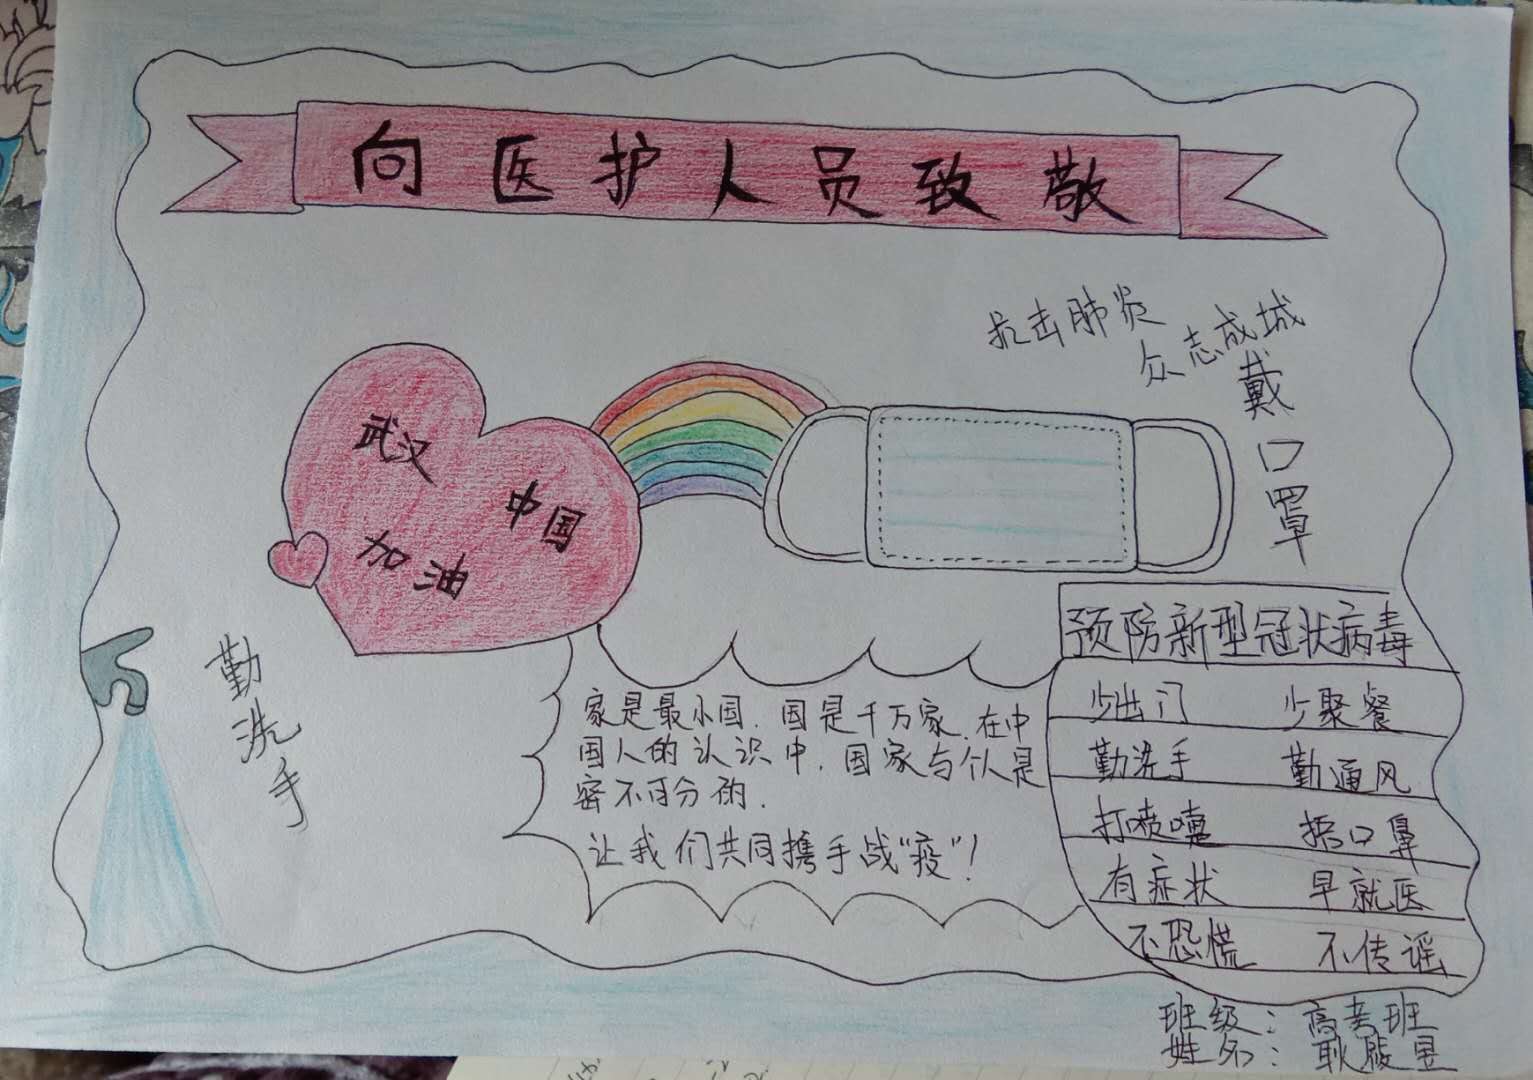 向医护人员致敬
抗击肺炎
众志成城
戴口罩
武汉
中国
加油
勤洗手
家是最小国.国是千万家.在中
国人的认识中.国家与个人是
密不可分的.
让我们共同携手战“疫”!
预防新型冠状病毒
少出门 少聚餐
勤洗手 勤通风
打喷嚏 捂口鼻
有症状 早就医
不恐慌 不传谣
班级:高考班
姓名:耿